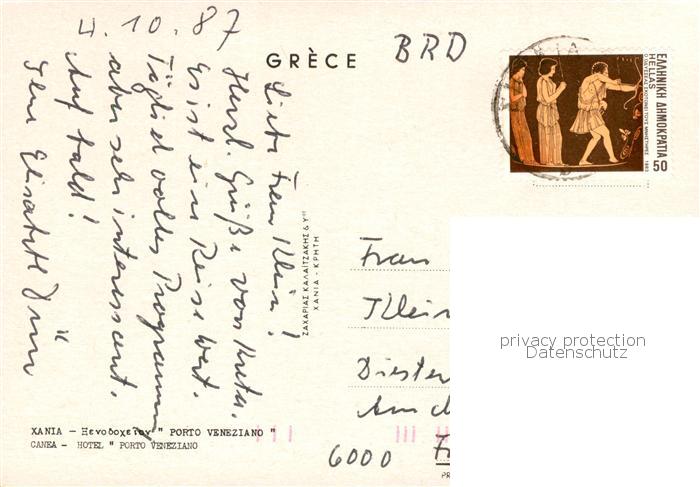 4.10.87
Liebe Frau Klein!
Herzl. Grüße von Kreta.
Es ist eine Reise wert.
Täglich volles Programm,
aber sehr interessant.
Auf bald!
Ihre Elisabeth
GRÈCE
BRD
ΕΛΛΗΝΙΚΗ ΔΗΜΟΚΡΑΤΙΑ
HELLAS
Ο ΟΔΥΣΣΕΑΣ ΣΚΟΤΩΝΕΙ ΤΟΥΣ ΜΝΗΣΤΗΡΕΣ 1983
50
ΖΑΧΑΡΙΑΣ ΚΑΛΑΪΤΖΑΚΗΣ & Υἱοί
ΧΑΝΙΑ - ΚΡΗΤΗ
Frau
Klein
Diester
Am
6000 Fr
privacy protection
Datenschutz
ΧΑΝΙΑ - Ξενοδοχεῖον " PORTO VENEZIANO "
CANEA - HOTEL " PORTO VENEZIANO
PR